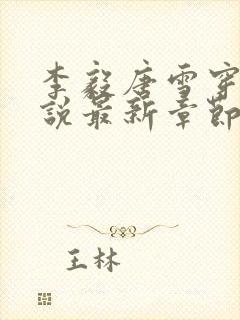 李毅唐雪穿
说最新章节
王林